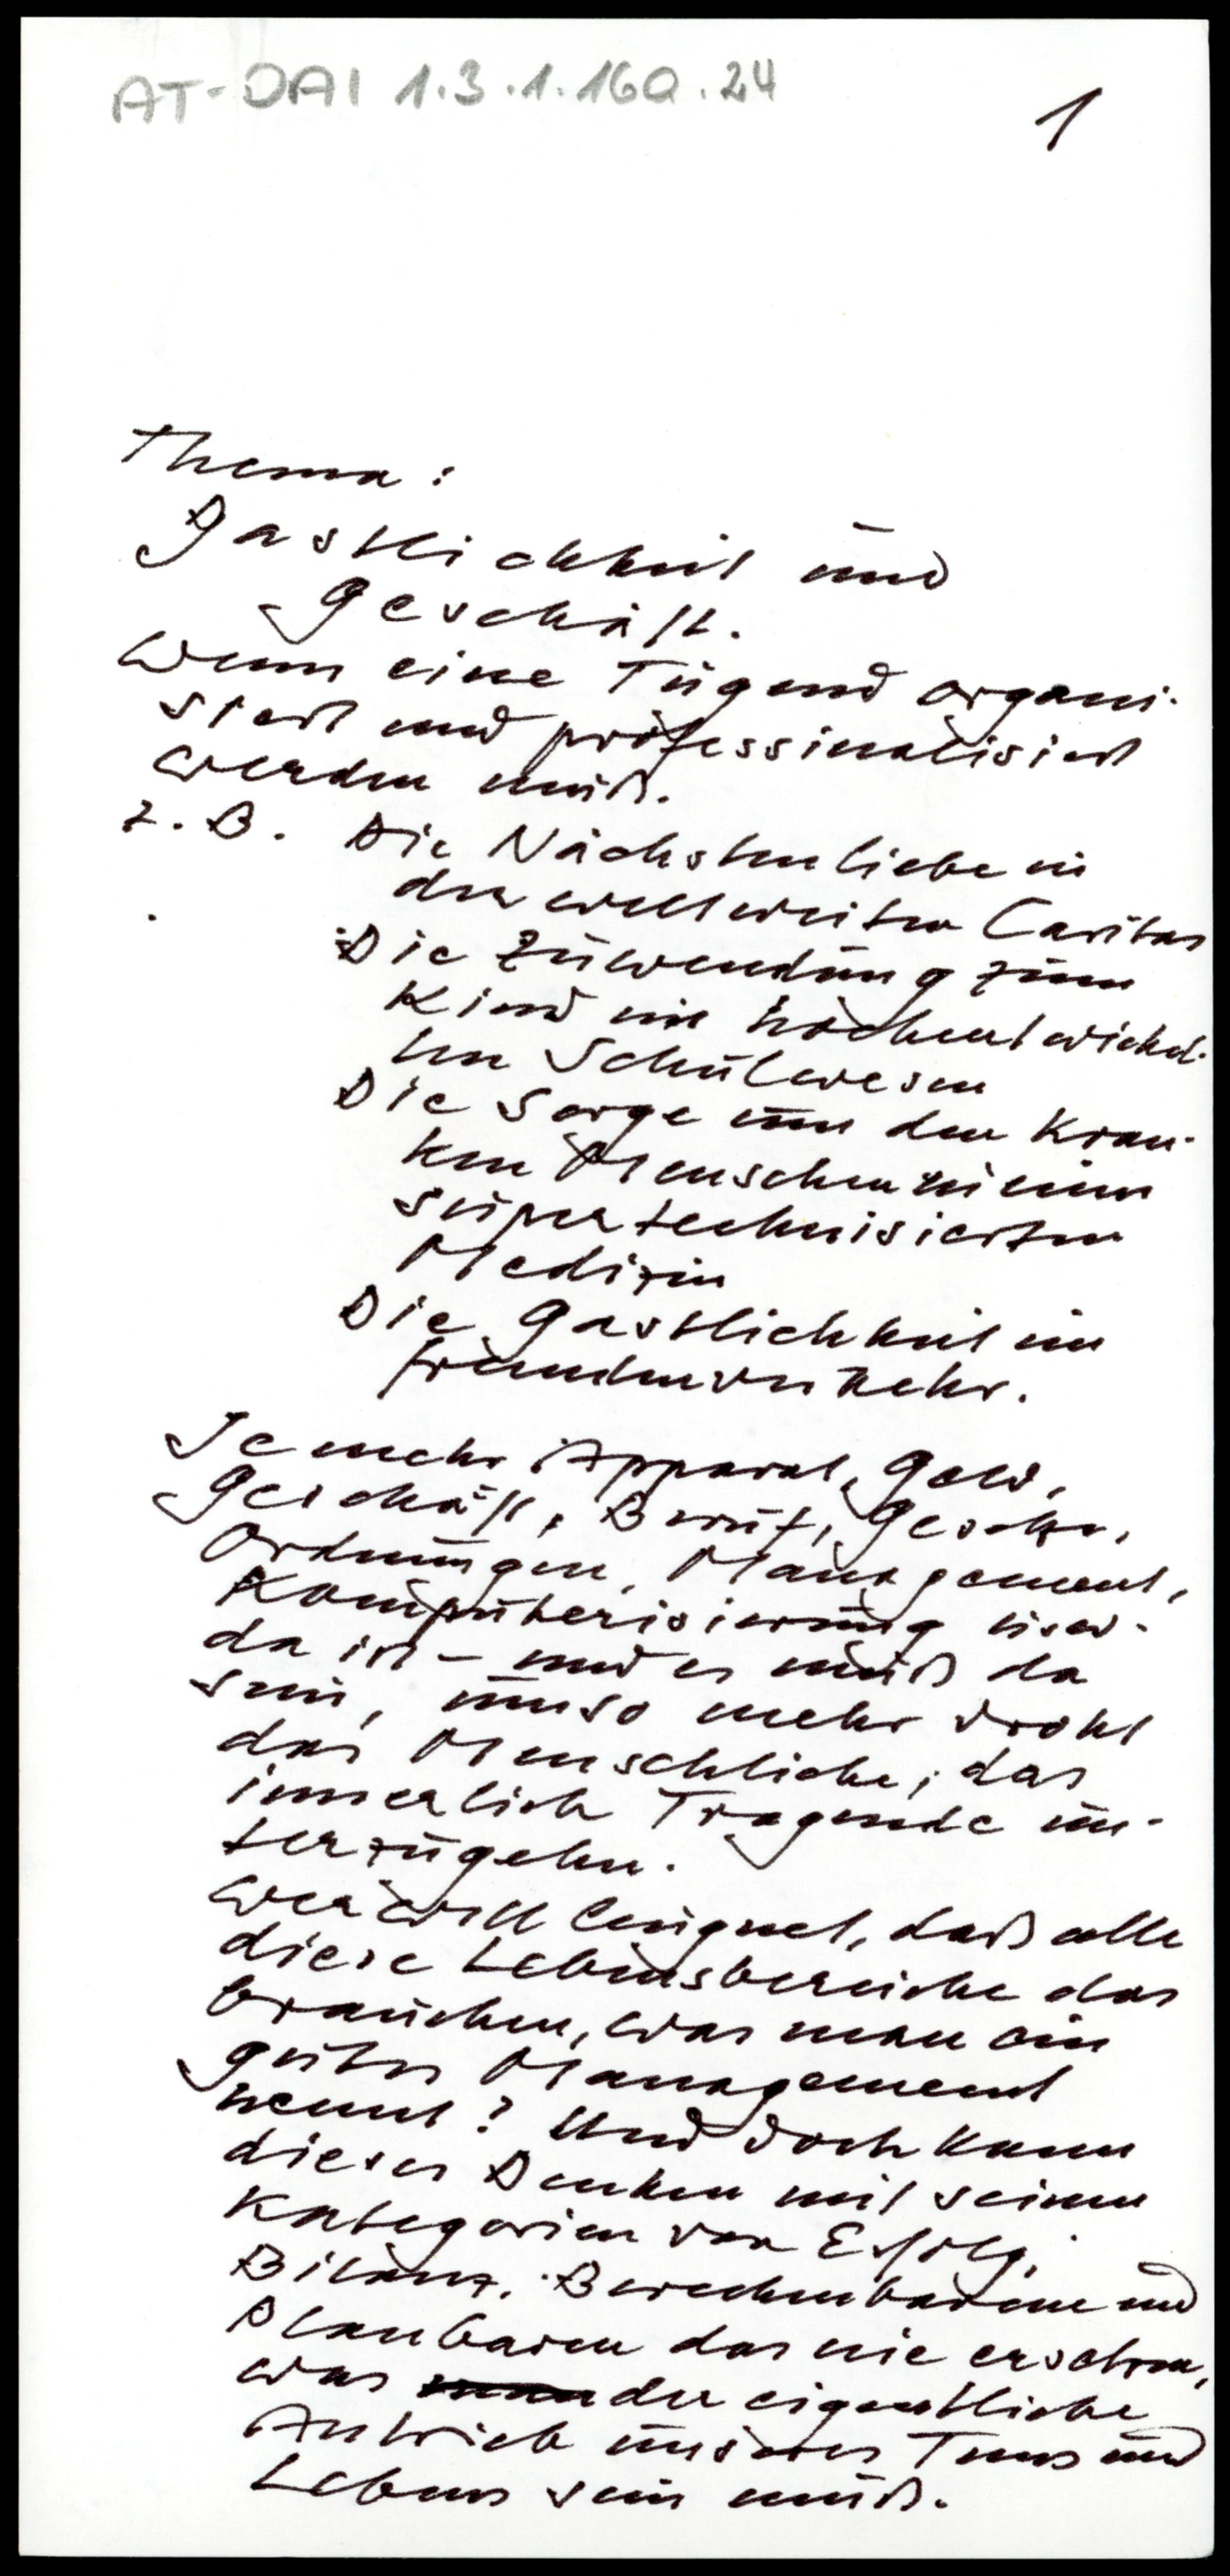 AT-DAI 1.3.1.160.24
1
Thema:
Gastlichkeit und
Geschäft.
Wenn eine Tugend organi-
siert und professionalisiert
werden muß.
z. B. Die Nächstenliebe in
der weltweiten Caritas
Die Zuwendung zum
Kind im hochentwickel-
ten Schulwesen
Die Sorge um den Kran-
ken Menschen in einer
supertechnisierten
Medizin
Die Gastlichkeit im
Fremdenverkehr.
Je mehr Apparat, Geld,
Geschäft, Beruf, Gesetze,
Ordnungen, Management,
Komputerisierung usw.
da ist – und es muß da
sein, umso mehr droht
das Menschliche, das
innerlich Tragende un-
terzugehn.
Wer will leugnet, daß alle
diese Lebensbereiche das
brauchen, was man ein
gutes Management
nennt? Und doch kann
dieses Denken mit seinen
Kategorien von Erfolg,
Bilanz, Berechenbarem und
Planbarem das nie ersetzen,
was der eigentliche
Antrieb unseres Tuns und
Lebens sein muß.